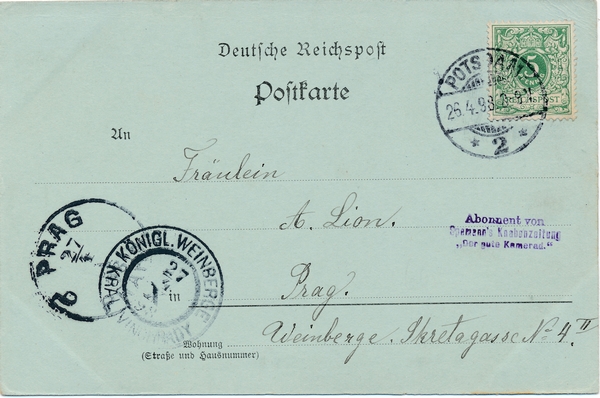 Deutsche Reichspost
Postkarte
5
REICHSPOST
POTSDAM
26.4.98
* 2 *
An
Fräulein
A. Lion.
Abonnent von
Spemann's Knabenzeitung
„Der gute Kamerad."
PRAG
27/4
KÖNIGL. WEINBERGE
27
in
Prag.
Weinberge. Skretagasse No 4. II
Wohnung
(Straße und Hausnummer)